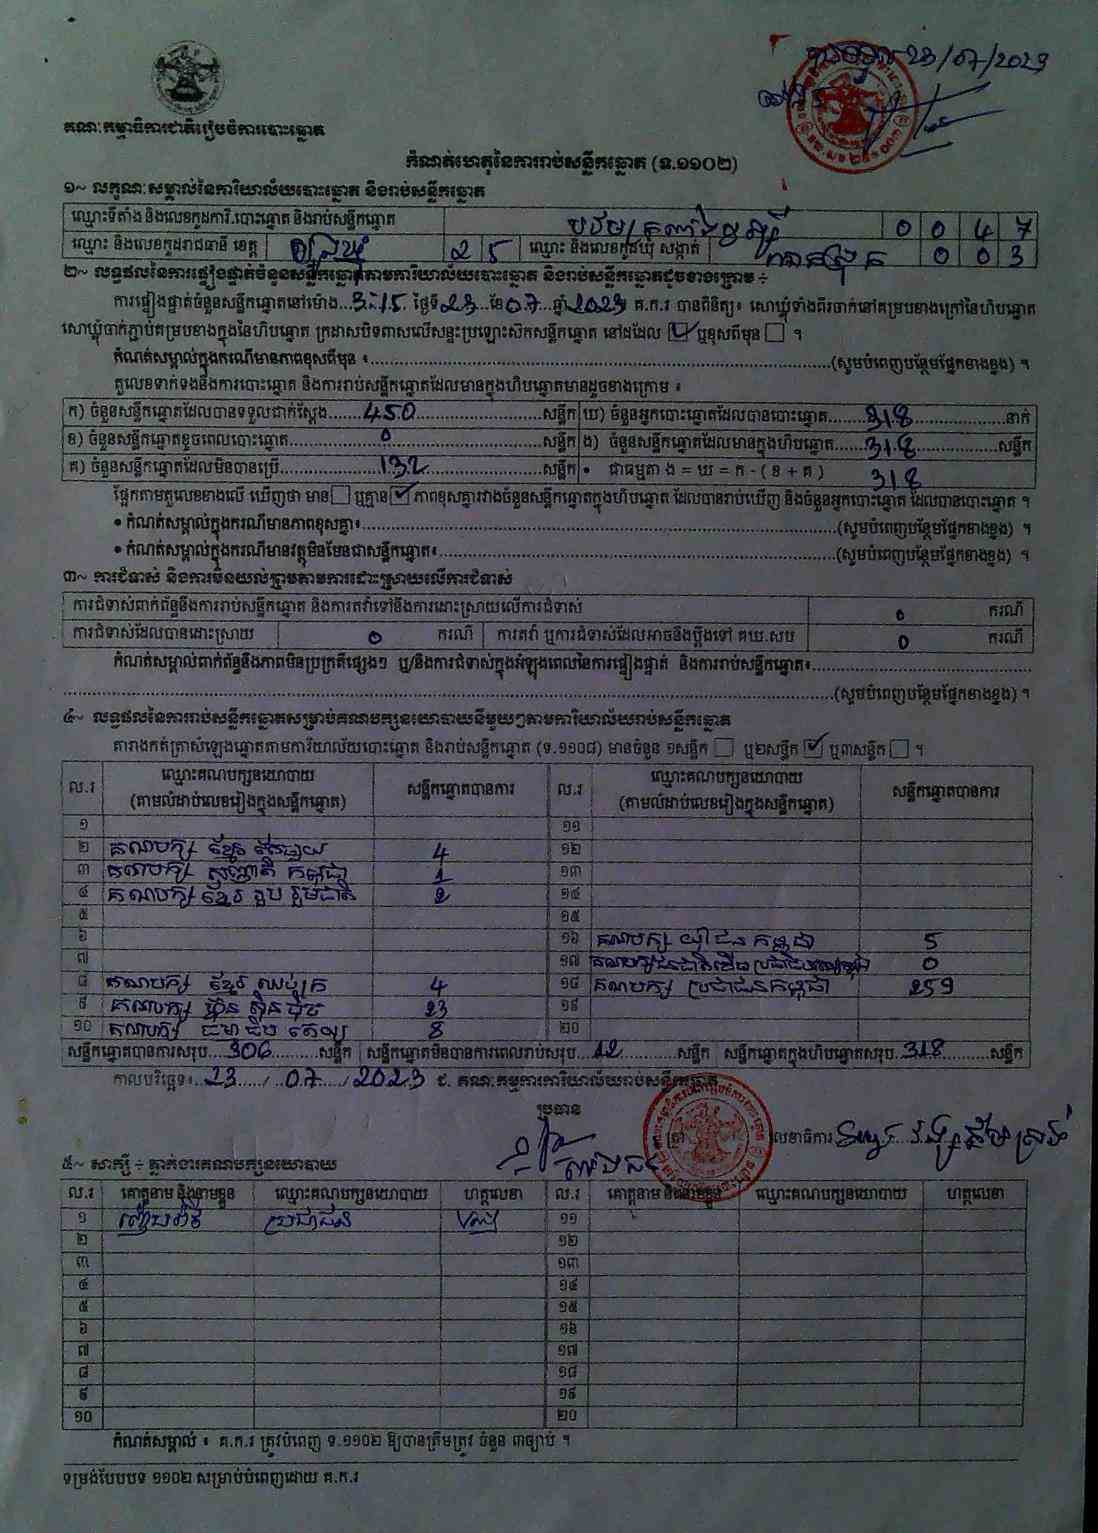 23/07/2023
គណៈកម្មាធិការជាតិរៀបចំការបោះឆ្នោត
កំណត់ហេតុនៃការរាប់សន្លឹកឆ្នោត (ទ.១១០២)
១~ លក្ខណៈសម្គាល់នៃការិយាល័យបោះឆ្នោត និងរាប់សន្លឹកឆ្នោត
ឈ្មោះទីតាំង និងលេខកូដការិ.បោះឆ្នោត និងរាប់សន្លឹកឆ្នោត 0 0 4 7
ឈ្មោះ និងលេខកូដរាជធានី ខេត្ត 2 5 ឈ្មោះ និងលេខកូដឃុំ សង្កាត់ 0 0 3
២~ លទ្ធផលនៃការផ្ទៀងផ្ទាត់ចំនួនសន្លឹកឆ្នោតតាមការិយាល័យបោះឆ្នោត និងរាប់សន្លឹកឆ្នោតដូចខាងក្រោម ÷
ការផ្ទៀងផ្ទាត់ចំនួនសន្លឹកឆ្នោតនៅម៉ោង...3:15 ថ្ងៃទី23 ខែ07 ឆ្នាំ2023 គ.ក.រ បានពិនិត្យ៖ សោឃ្មុំទាំងពីរចាក់នៅគម្របខាងក្រៅនៃហិបឆ្នោត
សោឃ្មុំចាក់ភ្ជាប់គម្របខាងក្នុងនៃហិបឆ្នោត ក្រដាសបិទពាសលើសន្ទះប្រឡោះសិកសន្លឹកឆ្នោត នៅដដែល ☑ ឬខុសពីមុន ☐ ។
កំណត់សម្គាល់ក្នុងករណីមានភាពខុសពីមុន ៖...(សូមបំពេញបន្ថែមផ្នែកខាងខ្នង) ។
តួលេខទាក់ទងនឹងការបោះឆ្នោត និងការរាប់សន្លឹកឆ្នោតដែលមានក្នុងហិបឆ្នោតមានដូចខាងក្រោម ៖
ក) ចំនួនសន្លឹកឆ្នោតដែលបានទទួលជាក់ស្តែង...450...សន្លឹក ឃ) ចំនួនអ្នកបោះឆ្នោតដែលបានបោះឆ្នោត...318...នាក់
ខ) ចំនួនសន្លឹកឆ្នោតខូចពេលបោះឆ្នោត...0...សន្លឹក ង) ចំនួនសន្លឹកឆ្នោតដែលមានក្នុងហិបឆ្នោត...318...សន្លឹក
គ) ចំនួនសន្លឹកឆ្នោតដែលមិនបានប្រើ...132...សន្លឹក • ជាធម្មតា ង = ឃ = ក - ( ខ + គ ) 318
ផ្អែកតាមតួលេខខាងលើ ឃើញថា មាន ☐ ឬគ្មាន ☑ ភាពខុសគ្នារវាងចំនួនសន្លឹកឆ្នោតក្នុងហិបឆ្នោត ដែលបានរាប់ឃើញ និងចំនួនអ្នកបោះឆ្នោត ដែលបានបោះឆ្នោត ។
• កំណត់សម្គាល់ក្នុងករណីមានភាពខុសគ្នា៖...(សូមបំពេញបន្ថែមផ្នែកខាងខ្នង) ។
• កំណត់សម្គាល់ក្នុងករណីមានវត្ថុមិនមែនជាសន្លឹកឆ្នោត៖...(សូមបំពេញបន្ថែមផ្នែកខាងខ្នង) ។
៣~ ការជំទាស់ និងការមិនយល់ព្រមតាមការដោះស្រាយលើការជំទាស់
ការជំទាស់ពាក់ព័ន្ធនឹងការរាប់សន្លឹកឆ្នោត និងការតវ៉ាទៅនឹងការដោះស្រាយលើការជំទាស់ 0 ករណី
ការជំទាស់ដែលបានដោះស្រាយ 0 ករណី ការតវ៉ា ឬការជំទាស់ដែលអាចនឹងប្តឹងទៅ គឃ.សប 0 ករណី
កំណត់សម្គាល់ពាក់ព័ន្ធនឹងភាពមិនប្រក្រតីផ្សេងៗ ឬ/និងការជំទាស់ក្នុងអំឡុងពេលនៃការផ្ទៀងផ្ទាត់ និងការរាប់សន្លឹកឆ្នោត៖...
...(សូមបំពេញបន្ថែមផ្នែកខាងខ្នង) ។
៤~ លទ្ធផលនៃការរាប់សន្លឹកឆ្នោតសម្រាប់គណបក្សនយោបាយនីមួយៗតាមការិយាល័យរាប់សន្លឹកឆ្នោត
តារាងកត់ត្រាសំឡេងឆ្នោតតាមការិយាល័យបោះឆ្នោត និងរាប់សន្លឹកឆ្នោត (ទ.១១០៨) មានចំនួន ១សន្លឹក ☐ ឬ២សន្លឹក ☑ ឬ៣សន្លឹក ☐ ។
ល.រ ឈ្មោះគណបក្សនយោបាយ (តាមលំដាប់លេខរៀងក្នុងសន្លឹកឆ្នោត) សន្លឹកឆ្នោតបានការ ល.រ ឈ្មោះគណបក្សនយោបាយ (តាមលំដាប់លេខរៀងក្នុងសន្លឹកឆ្នោត) សន្លឹកឆ្នោតបានការ
១ ១១
២ គណបក្ស ខ្មែរ តែមួយ 4 ១២
៣ គណបក្ស សញ្ជាតិ កម្ពុជា 1 ១៣
៤ គណបក្ស ខ្មែរ រួប រួមជាតិ 2 ១៤
៥ ១៥
៦ ១៦ គណបក្ស យុវជន កម្ពុជា 5
៧ ១៧ 0
៨ គណបក្ស ខ្មែរ ឈប់ក្រ 4 ១៨ គណបក្ស ប្រជាជនកម្ពុជា 259
៩ គណបក្ស ហ្វ៊ុនស៊ិនប៉ិច 23 ១៩
១០ 8 ២០
សន្លឹកឆ្នោតបានការសរុប...306...សន្លឹក សន្លឹកឆ្នោតមិនបានការពេលរាប់សរុប...12...សន្លឹក សន្លឹកឆ្នោតក្នុងហិបឆ្នោតសរុប...318...សន្លឹក
កាលបរិច្ឆេទ៖ 23/07/2023 ជ. គណៈកម្មការការិយាល័យរាប់សន្លឹកឆ្នោត
ប្រធាន
លេខាធិការ
៥~ សាក្សី ÷ ភ្នាក់ងារគណបក្សនយោបាយ
ល.រ គោត្តនាម និងនាមខ្លួន ឈ្មោះគណបក្សនយោបាយ ហត្ថលេខា ល.រ គោត្តនាម និងនាមខ្លួន ឈ្មោះគណបក្សនយោបាយ ហត្ថលេខា
១ ប្រជាជន ១១
២ ១២
៣ ១៣
៤ ១៤
៥ ១៥
៦ ១៦
៧ ១៧
៨ ១៨
៩ ១៩
១០ ២០
កំណត់សម្គាល់ ៖ គ.ក.រ ត្រូវបំពេញ ទ.១១០២ ឱ្យបានត្រឹមត្រូវ ចំនួន ៣ច្បាប់ ។
ទម្រង់បែបបទ ១១០២ សម្រាប់បំពេញដោយ គ.ក.រ